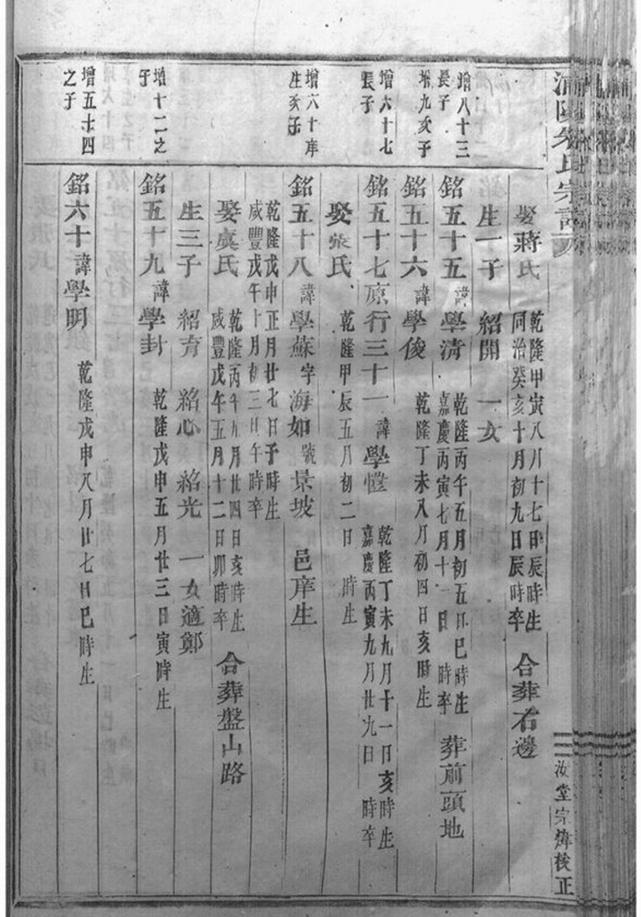 浦陽朱氏宗譜
汝堂宗煒校正
娶蔣氏 乾隆甲寅八月十七日辰時生 同治癸亥十月初九日辰時卒 合葬右邊
生一子 紹開 一女
增八十三長子
銘五十五 諱學清 乾隆丙午五月初五日巳時生 嘉慶丙寅七月十一日 時卒 葬前頭地
增九亥子
銘五十六 諱學俊 乾隆丁未八月初四日亥時生
增六十七長子
銘五十七原行三十一 諱學 乾隆丁未九月十一日亥時生 嘉慶丙寅九月廿九日 時卒
娶張氏 乾隆甲辰五月初二日 時生
增六十庠生亥子
銘五十八 諱學蘇字海如號景坡 邑庠生
乾隆戊申正月廿七日子時生 咸豐戊午十月初三日午時卒
娶虞氏 乾隆丙午九月廿四日亥時生 咸豐戊午五月十二日卯時卒 合葬盤山路
生三子 紹育 紹心 紹光 一女適鄭
增十二之子
銘五十九 諱學封 乾隆戊申五月廿三日寅時生
增五十四之子
銘六十 諱學明 乾隆戊申八月廿七日巳時生